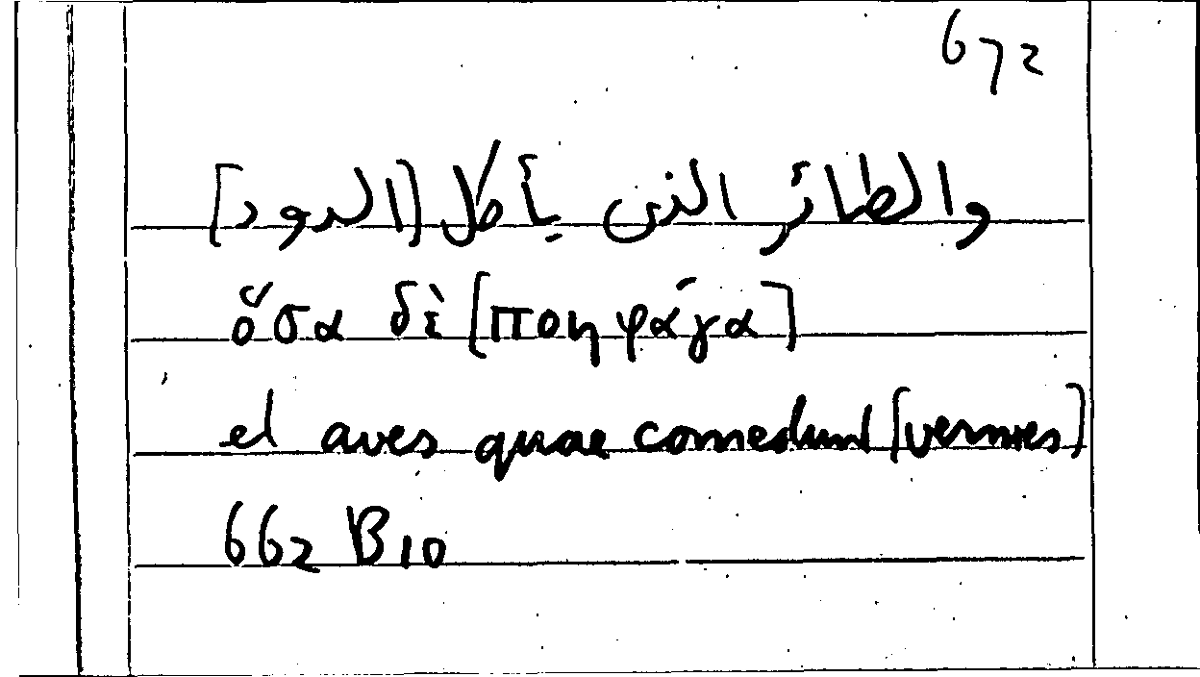 672
والطائر الذى يأكل [الدود]
ὅσα δὲ [ποηφάγα]
et aves quae comedunt [vermes]
662 B 10